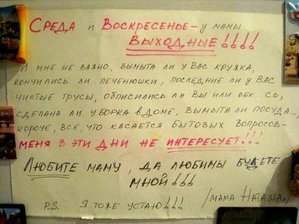 Среда и Воскресенье - у мамы
Выходные!!!!
И мне не важно, вымыта ли у вас кружка,
кончились ли печенюшки, последние ли у вас
чистые трусы, обписились ли вы или обк сь,
сделана ли уборка в доме, вымыта ли посуда...
короче, все, что касается бытовых вопросов-
меня в эти дни не интересует!!!
Любите маму, да любимы будете
мной!!!
P.S. Я тоже устаю!!! /мама Наташа/